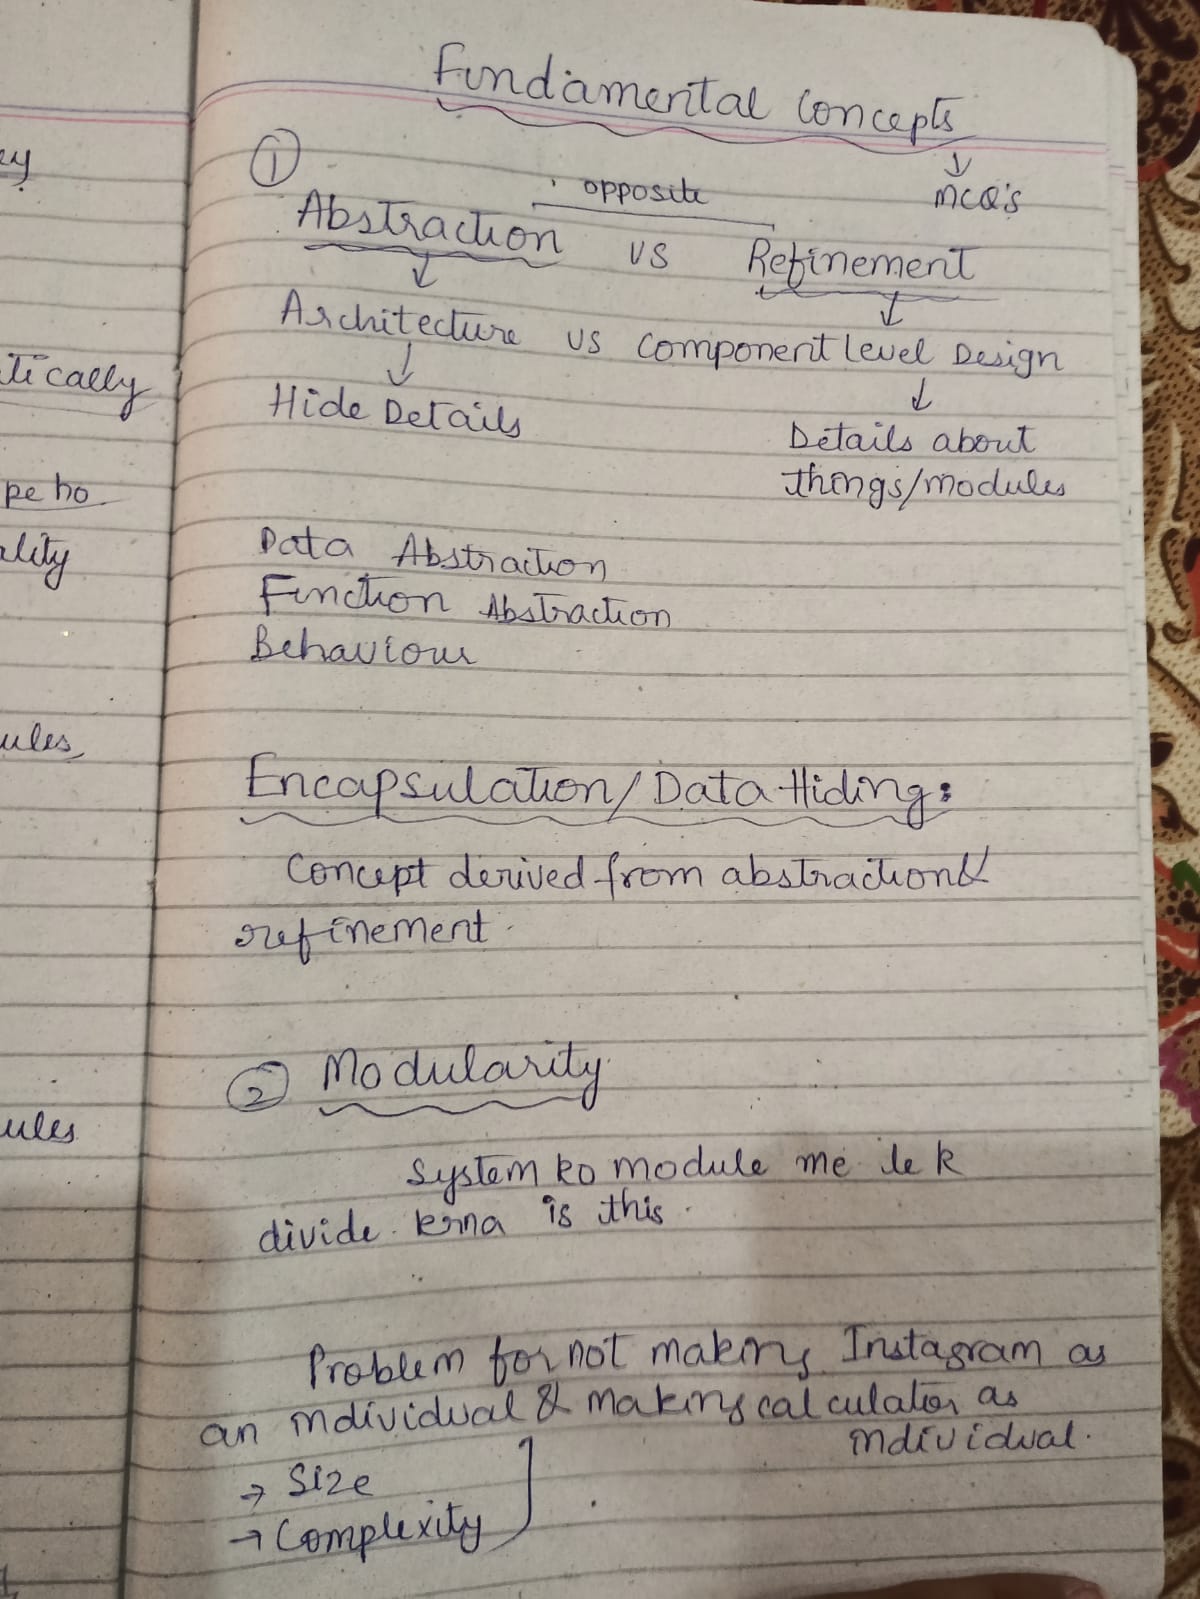 Fundamental Concepts
↓
MCQ's
①
opposite
Abstraction vs Refinement
↓ ↓
Architecture vs Component Level Design
↓ ↓
Hide Details
Details about
things/modules
Data Abstraction
Function Abstraction
Behaviour
Encapsulation/Data Hiding:
Concept derived from abstraction &
refinement.
② Modularity
System ko module me le k
divide krna is this.
Problem for not making Instagram as
an individual & making calculator as
individual.
→ Size
→ Complexity
ey
tically
pe ho
ality
ules
ules